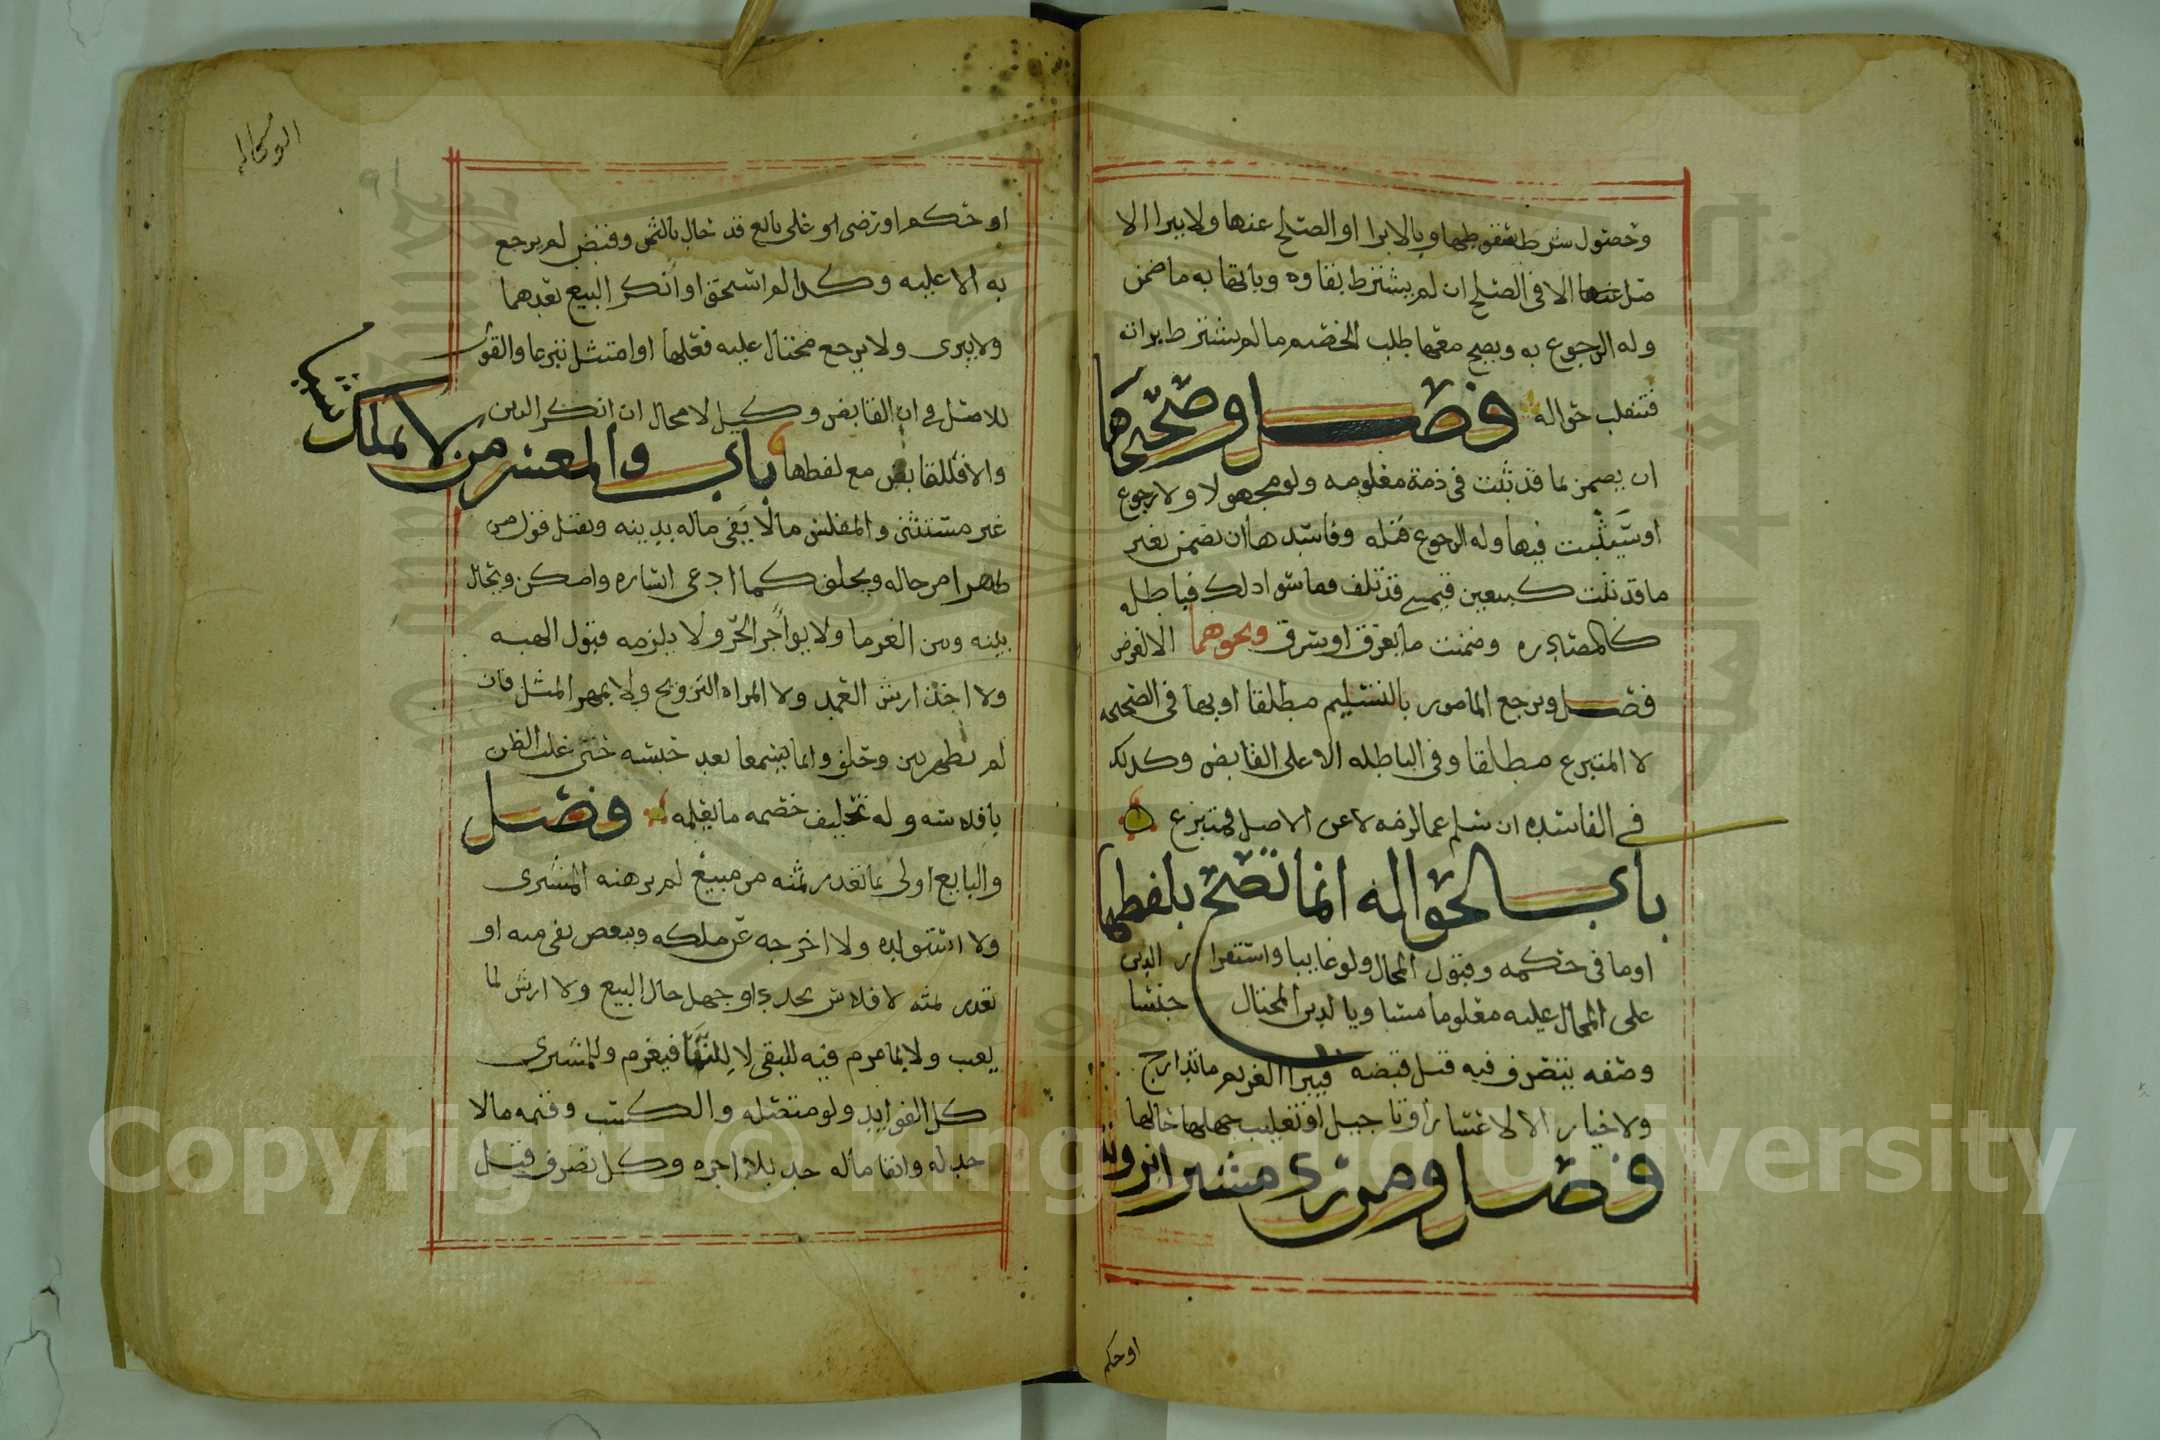 وحصول شرط سقوطها وبالابرا او الصلح عنها ولا يبرا الا
صل عنها الا في الصلح ان لم يشترط بقاوه وياتها به ما ضمن
وله الرجوع به ويصح معها طلب الخصم ما لم يشترط براته
فتنقلب حواله فصل وصحيحها
ان يضمن بما قد ثبت في ذمة معلومه ولو مجهولا ولا رجوع
او سيثبت فيها وله الرجوع قبله وفاسدها ان يضمن بغير
ما قد ثبت كبيعين قيمي قد تلف وما سوا ذلك فباطله
كالمصادره وضمنت ما يغرق او يسرق ونحوهما الا لغرض
فصل ويرجع المامور بالتسليم مطلقا او بها في الصحيحه
لا المتبرع مطلقا وفي الباطله الا على القابض وكذلك
في الفاسده ان سلم عما لزمه لا عن الاصل فمتبرع
باب الحواله انما تصح بلفظها
او ما في حكمه وقبول المحال ولو غايبا واستقرار الدين
على المحال عليه معلوما مساويا لدين المحتال جنسا
وصفه يتصرف فيه قبل قبضه فيبرا الغريم ما تدارج
ولا خيار الا لاعسار او تاجيل او تغليب جهلها حالها
فصل ومن رد مشترا برويه
او حكم
الوكاله
او حكم او رضى او على بايع قد حال بالثمن وقبض لم يرجع
به الا عليه وكذا لو استحق او انكر البيع بعدهما
ولا يبرى ولا يرجع محتال عليه فعلها او امتثل تبرعا والقول
للاصل في ان القابض وكيل لا محال ان انكر الدين
والا فللقابض مع لفظها باب والمعسر من لا يملك شيئا
غير مستثنى والمفلس من لا يفي ماله بدينه ويقبل قول من
ظهر امن حاله ويحلف كلما ادعى ايساره وامكن ويحال
بينه وبين الغرما ولا يواجر الحر ولا يلزمه قبول الهبه
ولا اخذ ارش العمد ولا المراه التزويج ولا بمهر المثل فان
لم يظهر بين وحلف وانما يسمعا بعد حبسه حتى غلب الظن
بافلاسه وله تحليف خصمه ما يعلمه فصل
والبايع اولى بما تعذر ثمنه من مبيع لم يرهنه المشتري
ولا استولده ولا اخرجه عن ملكه وببعض بقي منه او
تعذر ثمنه لافلاس تجدد او جهل حال البيع ولا ارش لما
تعيب ولا لما غرم فيه للبقى لا للنما فيغرم وللمشتري
كل الفوايد ولو متصله والكسب وقيمه مالا
حد له وابقا ماله حد بلا اجره وكل تصرف قبل
Copyright © King Saud University